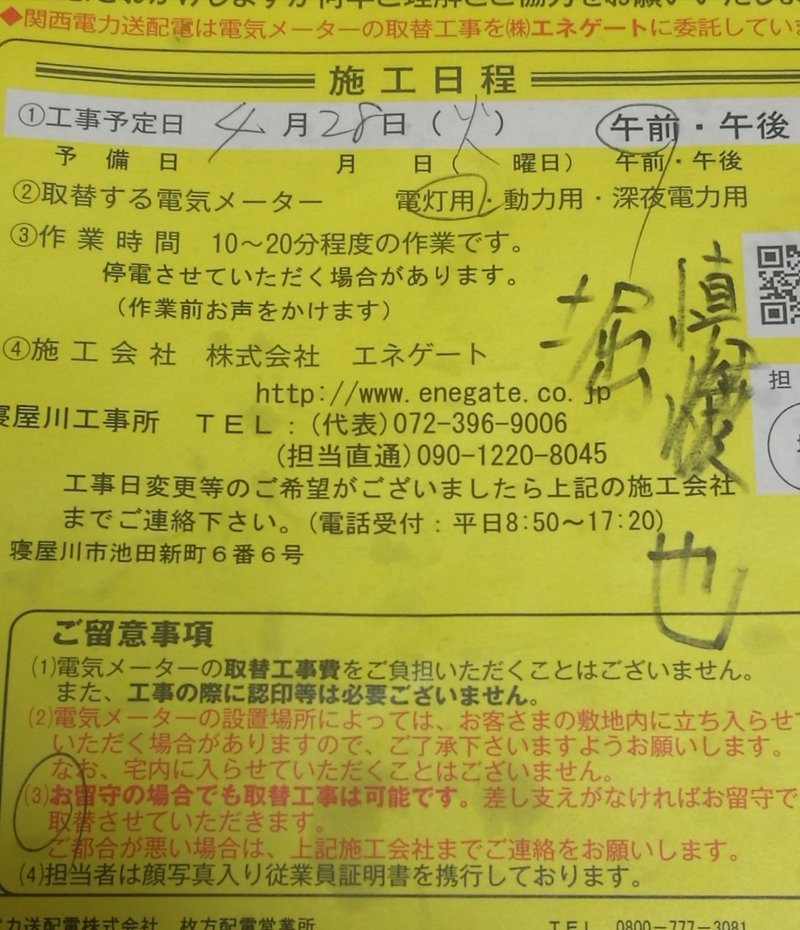 ◆関西電力送配電は電気メーターの取替工事を㈱エネゲートに委託していま
施工日程
①工事予定日 4月28日（火） 午前・午後
予備日 月 日（ 曜日） 午前・午後
②取替する電気メーター 電灯用・動力用・深夜電力用
③作業時間 10～20分程度の作業です。
停電させていただく場合があります。
（作業前お声をかけます）
④施工会社 株式会社 エネゲート
http://www.enegate.co.jp
寝屋川工事所 ＴＥＬ：(代表)072-396-9006
(担当直通)090-1220-8045
工事日変更等のご希望がございましたら上記の施工会社
までご連絡下さい。(電話受付：平日8:50～17:20)
寝屋川市池田新町６番６号
堀
慎
也
担
ご留意事項
(1)電気メーターの取替工事費をご負担いただくことはございません。
また、工事の際に認印等は必要ございません。
(2)電気メーターの設置場所によっては、お客さまの敷地内に立ち入らせて
いただく場合がありますので、ご了承下さいますようお願いします。
なお、宅内に入らせていただくことはございません。
(3)お留守の場合でも取替工事は可能です。差し支えがなければお留守で
取替させていただきます。
ご都合が悪い場合は、上記施工会社までご連絡をお願いします。
(4)担当者は顔写真入り従業員証明書を携行しております。
力送配電株式会社 枚方配電営業所 ＴＥＬ 0800-777-3081